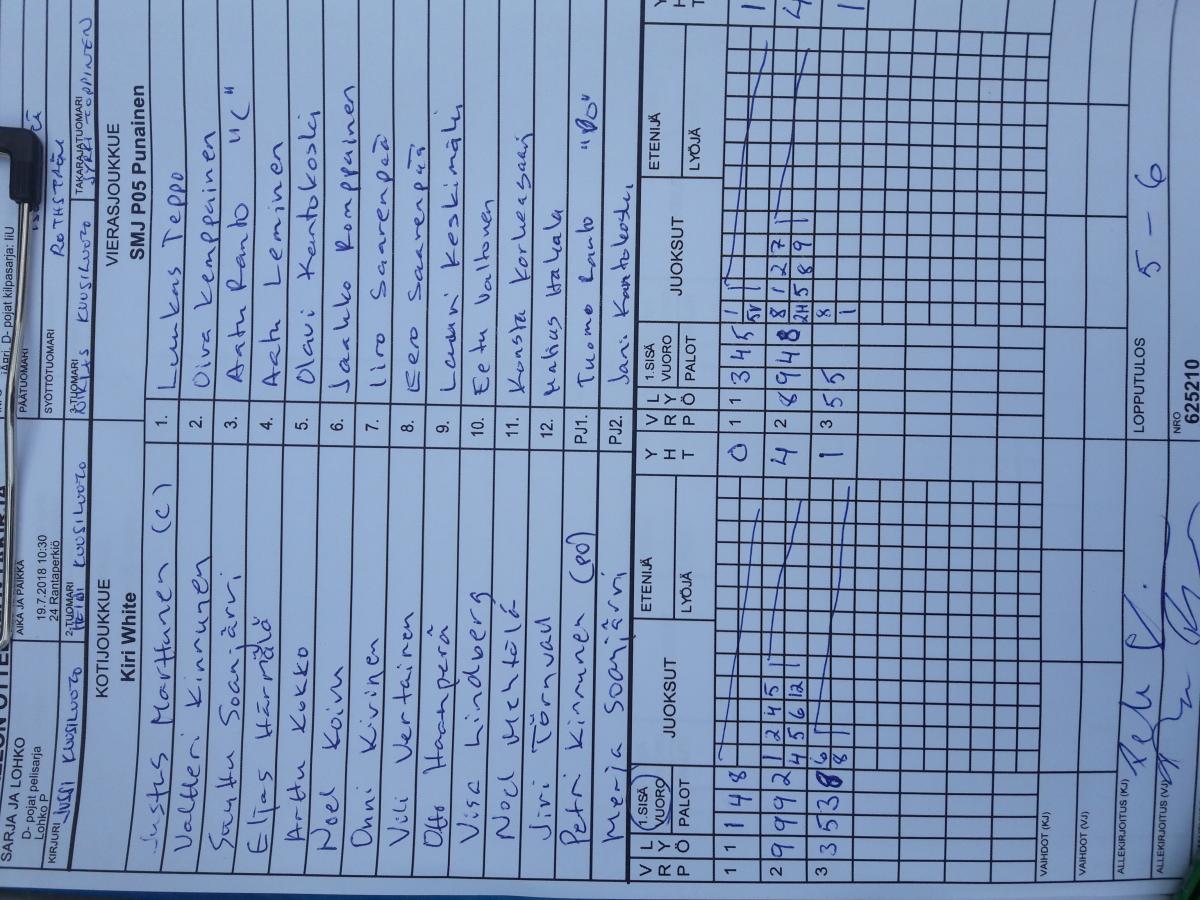 SARJA JA LOHKO
D- pojat pelisarja
Lohko P
AIKA JA PAIKKA
19.7.2018 10:30
24 Rantaperkiö
D- pojat kilpasarja:
KIRJURI
JUSSI KUUSILUOTO
2-TUOMARI
HEIDI KUUSILUOTO
PÄÄTUOMARI
SYÖTTÖTUOMARI
ROTHSTRÄM
3-TUOMARI
KUUSILUOTO
TAKARAJATUOMARI
JYRKI TOPPINEN
KOTIJOUKKUE
Kiri White
VIERASJOUKKUE
SMJ P05 Punainen
Justus Marttunen (c)
1. Luukas Teppo
Valtteri Kinnunen
2. Oiva Kemppainen
Santtu Soanjärvi
3. Aatu Ranto "C"
Elias Härmälä
4. Aatu Leminen
Arttu Kokko
5. Olavi Kantokoski
Noel Koivu
6. Jaakko Romppainen
Onni Kivinen
7. Iiro Saarenpää
Vili Vertainen
8. Eero Saarenpää
Otto Haanperä
9. Lauri Keskimäki
Visa Lindberg
10. Eetu Valtonen
Noel Mehtälä
11. Konsta Korkeasaari
Jiri Törnvall
12. Matias Hakala
Petri Kinnunen (PO)
PJ1. Tuomo Ranto "PO"
Merja Soanjärvi
PJ2. Jani Kantokoski
V R P
L Y Ö
1.SISÄ VUORO
PALOT
JUOKSUT
ETENIJÄ
LYÖJÄ
Y H T
V R P
L Y Ö
1.SISÄ VUORO
PALOT
JUOKSUT
ETENIJÄ
LYÖJÄ
Y H T
1 1 1 4 8 0
1 1 3 4 5 1 1
2 9 9 9 2 1 2 4 5 1 4
4 5 6 12
2 8 9 4 8 8 1 2 7 1 4
2H 5 8 9
3 3 5 3 8 6 1 1
8
3 5 5 8 1
1
VAIHDOT (KJ)
VAIHDOT (VJ)
ALLEKIRJOITUS (KJ)
ALLEKIRJOITUS (VJ)
LOPPUTULOS
5 - 6
NRO
625210